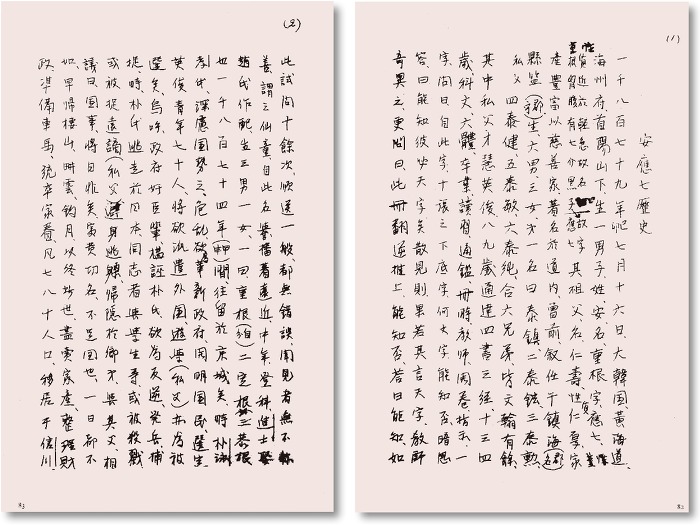 (1)
安應七歷史
一千八百七十九年己卯七月十六日、大韓國黃海道
海州府、首陽山下、生一男子、姓安、名重根、字應七、
性質近於輕急、故名曰重根、胸腹有七介黑子、故字應七、其祖父、名仁壽、性質仁厚、家
產豐富、以慈善家、著名於道內、曾前敘任于鎮海(郡名)
縣監(鄕)生六男三女、第一名曰泰鎮、二泰鉉、三泰勳
(私父)四泰健、五泰敏、六泰純、合六兄弟、皆文翰有餘、
其中私父才慧英俊、八九歲、通達四書三經、十三四
歲、科文六體卒業、讀習通鑑、冊時敎師開卷、指示一
字、問曰、自此字、十張之下底字、何字、能知否、暗思
答曰、能知、彼必天字矣、散見則果若其言天字、敎師
奇異之、更問曰、此冊翻逆推上、能知否、答曰能知、如
82
(2)
此試問十餘次、順逆一般、都無錯誤、聞見者無不稱
善、謂之仙童、自此名譽播著遠近、中年登科進士、娶
趙氏作配、生三男一女、一曰重根(私)二定根三恭根
也、一千八百七十四年(甲申)間、往留於京城矣、時朴泳
孝氏、深慮國勢之危亂、欲革新政府、開明國民、選定
英俊青年七十人、將欲派遣外國遊學、(私父)亦爲被
選矣、嗚呼、政府奸臣輩、搆誣朴氏、欲爲反逆、發兵捕
捉、時朴氏逃走於日本、同志者與學生等、或被殺戮
或被捉遠謫、(私父)避身逃躱、歸隱於鄕第、與其父、相
議曰、國事將日非矣、富貴功名、不足圖也、一日都不
如早歸棲山、畊雲釣月、以終此世、盡賣家產、整理財
政、準備車馬、統率家眷、凡七八十人口、移居于信川
83